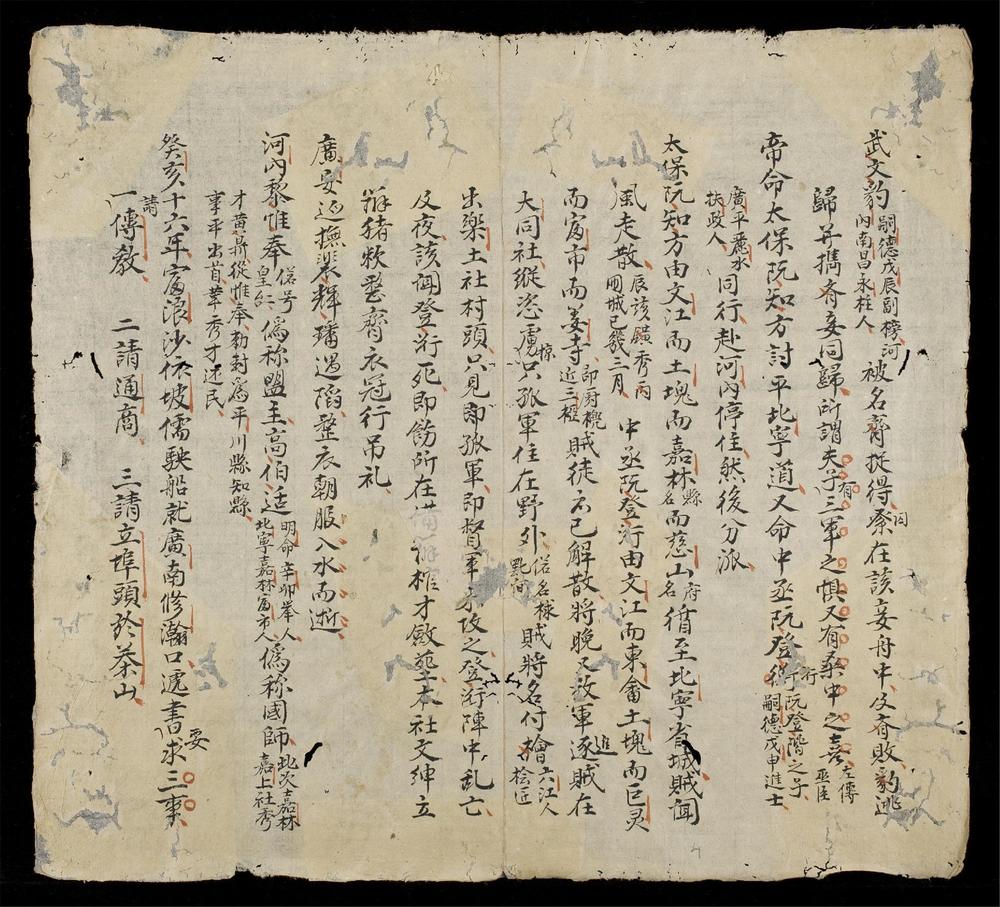 武文豹嗣德戊辰副榜河內南昌永柱人被名齊捉得祭在該妾舟中及齊敗豹逃
歸并擕齊妾同歸所謂夫子有三軍之懼又有桑中之喜左傳巫臣
帝命太保阮知方討平北寧道又命中丞阮登𧗱行阮登階之子嗣德戊申進士
廣平麗水扶政人同行赴河內停住然後分派
太保阮知方由文江而土塊而嘉林縣名而慈山府名循至北寧省城賊聞
風走散辰該鎮秀丙圍城已幾二月中丞阮登衍由文江而東畬土塊而巨灵
而富市而姜寺即廚櫆近三椏賊徒尒已解散將晚又放軍追逐賊在
大同社縱恣掠虜只孤軍住在野外賊將名付檜六江人
出樂土社村頭只見即孤軍即督軍來攻之登衍陣中乱亡
及夜該聞登衍死即飭所在椎才斂塟本社文紳立
辦猪粢整齊衣冠行吊礼
廣安巡撫裴輝璠遇䧟整衣朝服入水而逝
河內黎惟奉偽号皇台偽称盟主高伯适明命辛卯举人北寧嘉林富市人偽称國師此次嘉林嘉上社秀
才黄鼎從惟奉勑封為平川縣知縣
事平出首革秀才还民
癸亥十六年富浪沙依坡儒駛船就廣南修瀚口遞書要求三事
一請傳教 二請通商 三請立埠頭於茶山